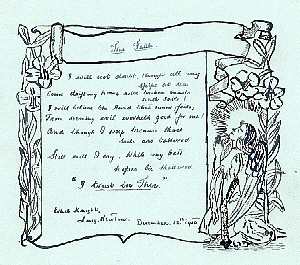 Faith
I will not doubt, though all my
ships at sea
Come drifting home with broken masts
and sails!
I will believe the Hand never fails,
From seeming evil worketh good for me!
And though I weep because those
sails are tattered
Still will I cry, while my best
hopes lie shattered
"I trust in Thee."
Edith
December